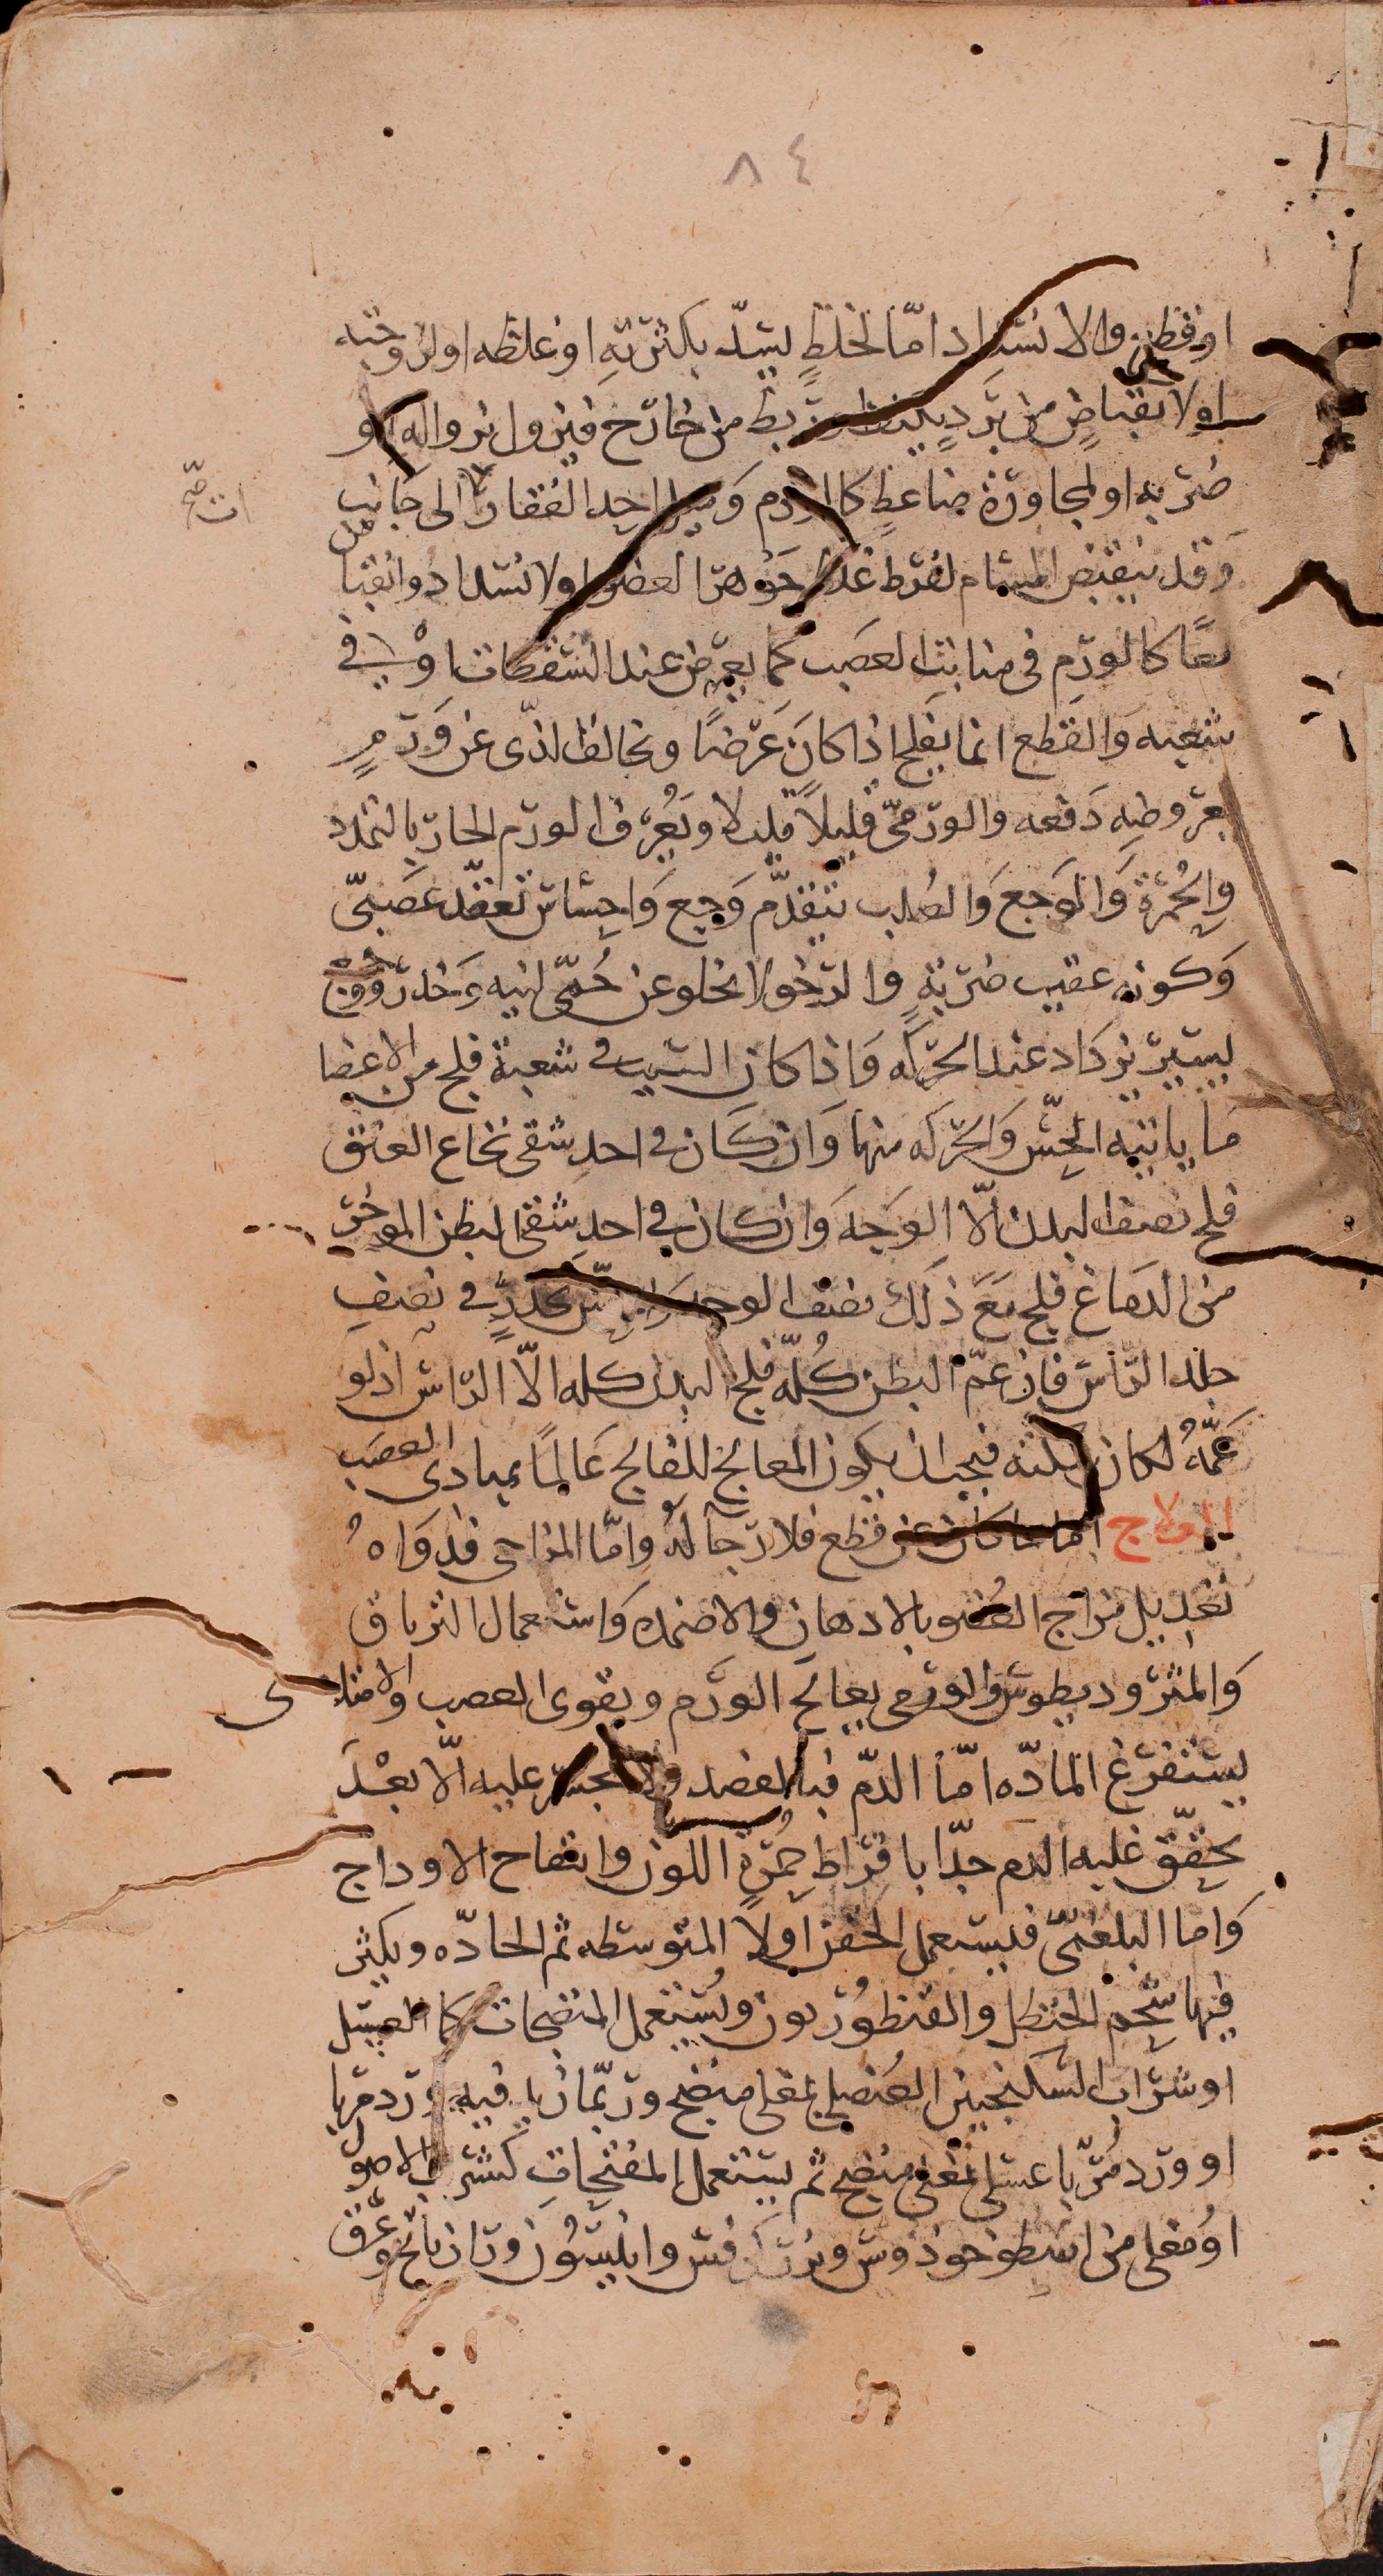 ٨٤
او قطع والانسداد امّا لخلطٍ يسدّ بكثرتهِ او غلظه او لزوجته
او لانقباضٍ من بردٍ يكثف او ربط من خارج فيزول بزواله او
ضربه او لمجاورة ضاغطٍ كالورم وميل احد الفقارات الى جانب
ات صح
وقد ينقبض المسام لفرط غلظ جوهر العضو او لانسداد وانقباض
معًا كالورم في منابت العصب كما يعرض عند السقطات او في
شعبه والقطع انما يفلج اذا كان عَرْضًا ويخالف الذى عن ورمٍ
بعروضه دفعه والورمىّ قليلاً قليلا ويُعرف الورم الحار بالتمدد
والحُمرة والوجع والصلب بتقدّم وجع واحساس تعقّد عصبىّ
وكونه عقيب ضربةٍ والرخو لا يخلو عن حُمّى لينه وخدر ووجع
يسير يزداد عند الحركه واذا كان السبب في شعبة فلج من الاعضا
ما ياتيه الحسّ والحركه منها وان كان في احد شقى نخاع العنق
فلج نصف البدن الّا الوجه وان كان في احد شقى البطن الموخر
من الدماغ فلج مع ذلك نصف الوجه واحسّ بخدرٍ في نصف
جلد الرّاس فان عمّ البطن كُلّه فلج البدن كله الّا الرّاس اذ لو
عمّهُ لكان سكته فيجب ان يكون المعالج للفالج عالمًا بمبادى العصب
العلاج اما ما كان عن قطع فلا رجا له وامّا المزاجى فدواهُ
تعديل مزاج العضو بالادهان والاضمده واستعمال الترياق
والمثروديطوس والورمى يعالج الورم ويقوى العصب والامتلاى
يستفرغ المادّه امّا الدّم فبالفصد ولا يجسر عليه الّا بعْد
تحقّق غلبه الدم جدّا بافراط حُمرة اللون وانتفاخ الاوداج
وَاما البلغمىّ فيستعمل الحقن اولا المتوسطه ثم الحادّه ويكثر
فيها شحم الحنظل والقنطوريون ويُستعمل المنضجات كما العسل
او شراب السكنجبين العُنصلى بمغلى منضج وربّما زيد فيه ورد مربا
او ورد مُربّا عسلى بمغلى منضج ثم يستعمل المفتحات كشراب الاصول
اَو مُغلى من اسطوخوذوس وبزر كرفس وانيسُون ورازيانج وعرق